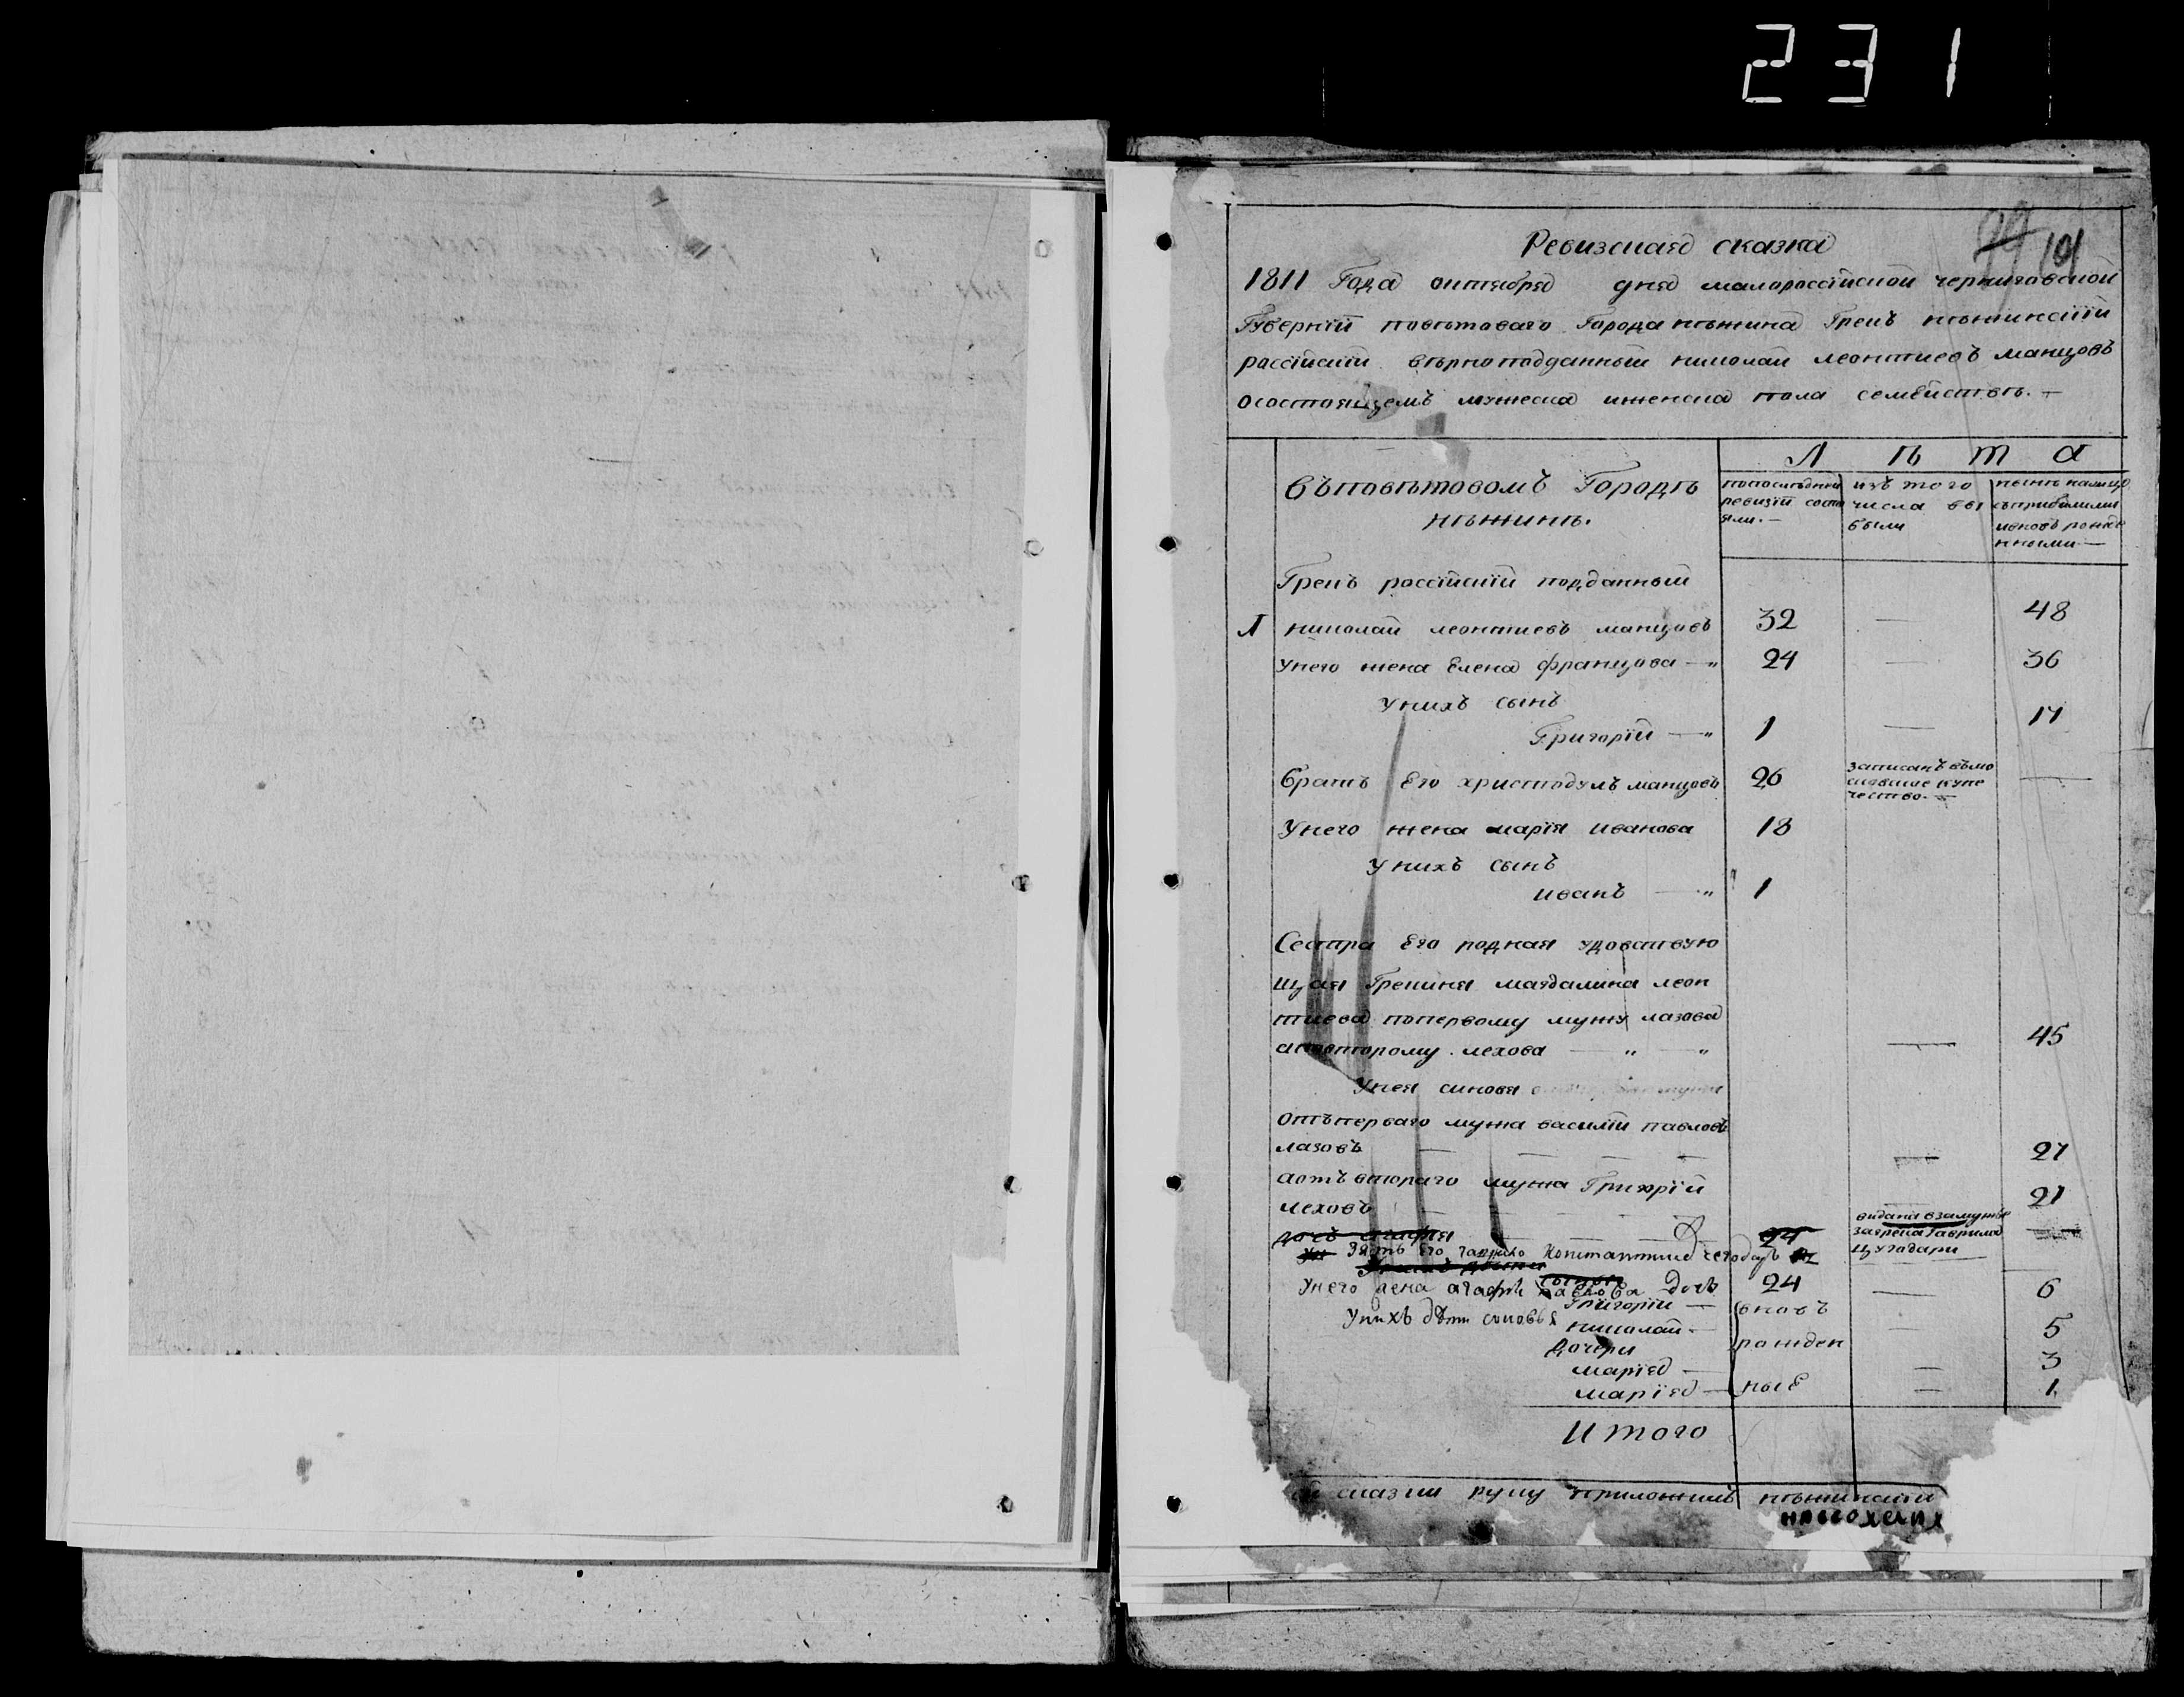 231
99 101
Ревизская сказка
1811 Года октября дня малороссійской черниговской
Губерніи повѣтоваго Города нѣжина Грекъ нѣжинскій
россійскій вѣрноподданный николай леонтиевъ манцовъ
осостоящемъ мужеска иженска пола семействѣ. —
Л ѣ т а
Въповѣтовомъ Городѣ
нѣжинѣ.
попоследней
ревизіи состо
яли. —
изъ того
числа вы
были
нынѣ налицо
съприбылими
ивновь рожде
нными —
Грекъ россійскій подданный
николай леонтиевъ манцовъ 32 — 48
Унего жена Елена францова — 24 — 36
Унихъ сынъ
Григорій — 1 — 17
Братъ Его христодулъ манцовъ 26 записанъ вьмо
сковское купе
чество. — —
Унего жена марія иванова 18
Унихъ сынъ
иванъ — 1
Сестра Его родная удовствую
щая Грекиня магдалина леон
тиева попервому мужу лазова
а повторому лехова — — 45
Унея синовя
Отъперваго мужа василій павловъ
лазовъ — — — — 27
аотъвтораго мужа Григорій
леховъ — 21
дочь агафія — 24 видана взамужье
загрека Гаврила
цугадари
Зять Его гаврило Константинъ
Унего жена агафія павлова дочь 24 — 6
Унихъ дѣти синовья Григорій — вновь
николай — — 5
дочери рожден
марія — — 3
марія — ные — 1
Итого
сказки руку приложилъ нѣжинскій